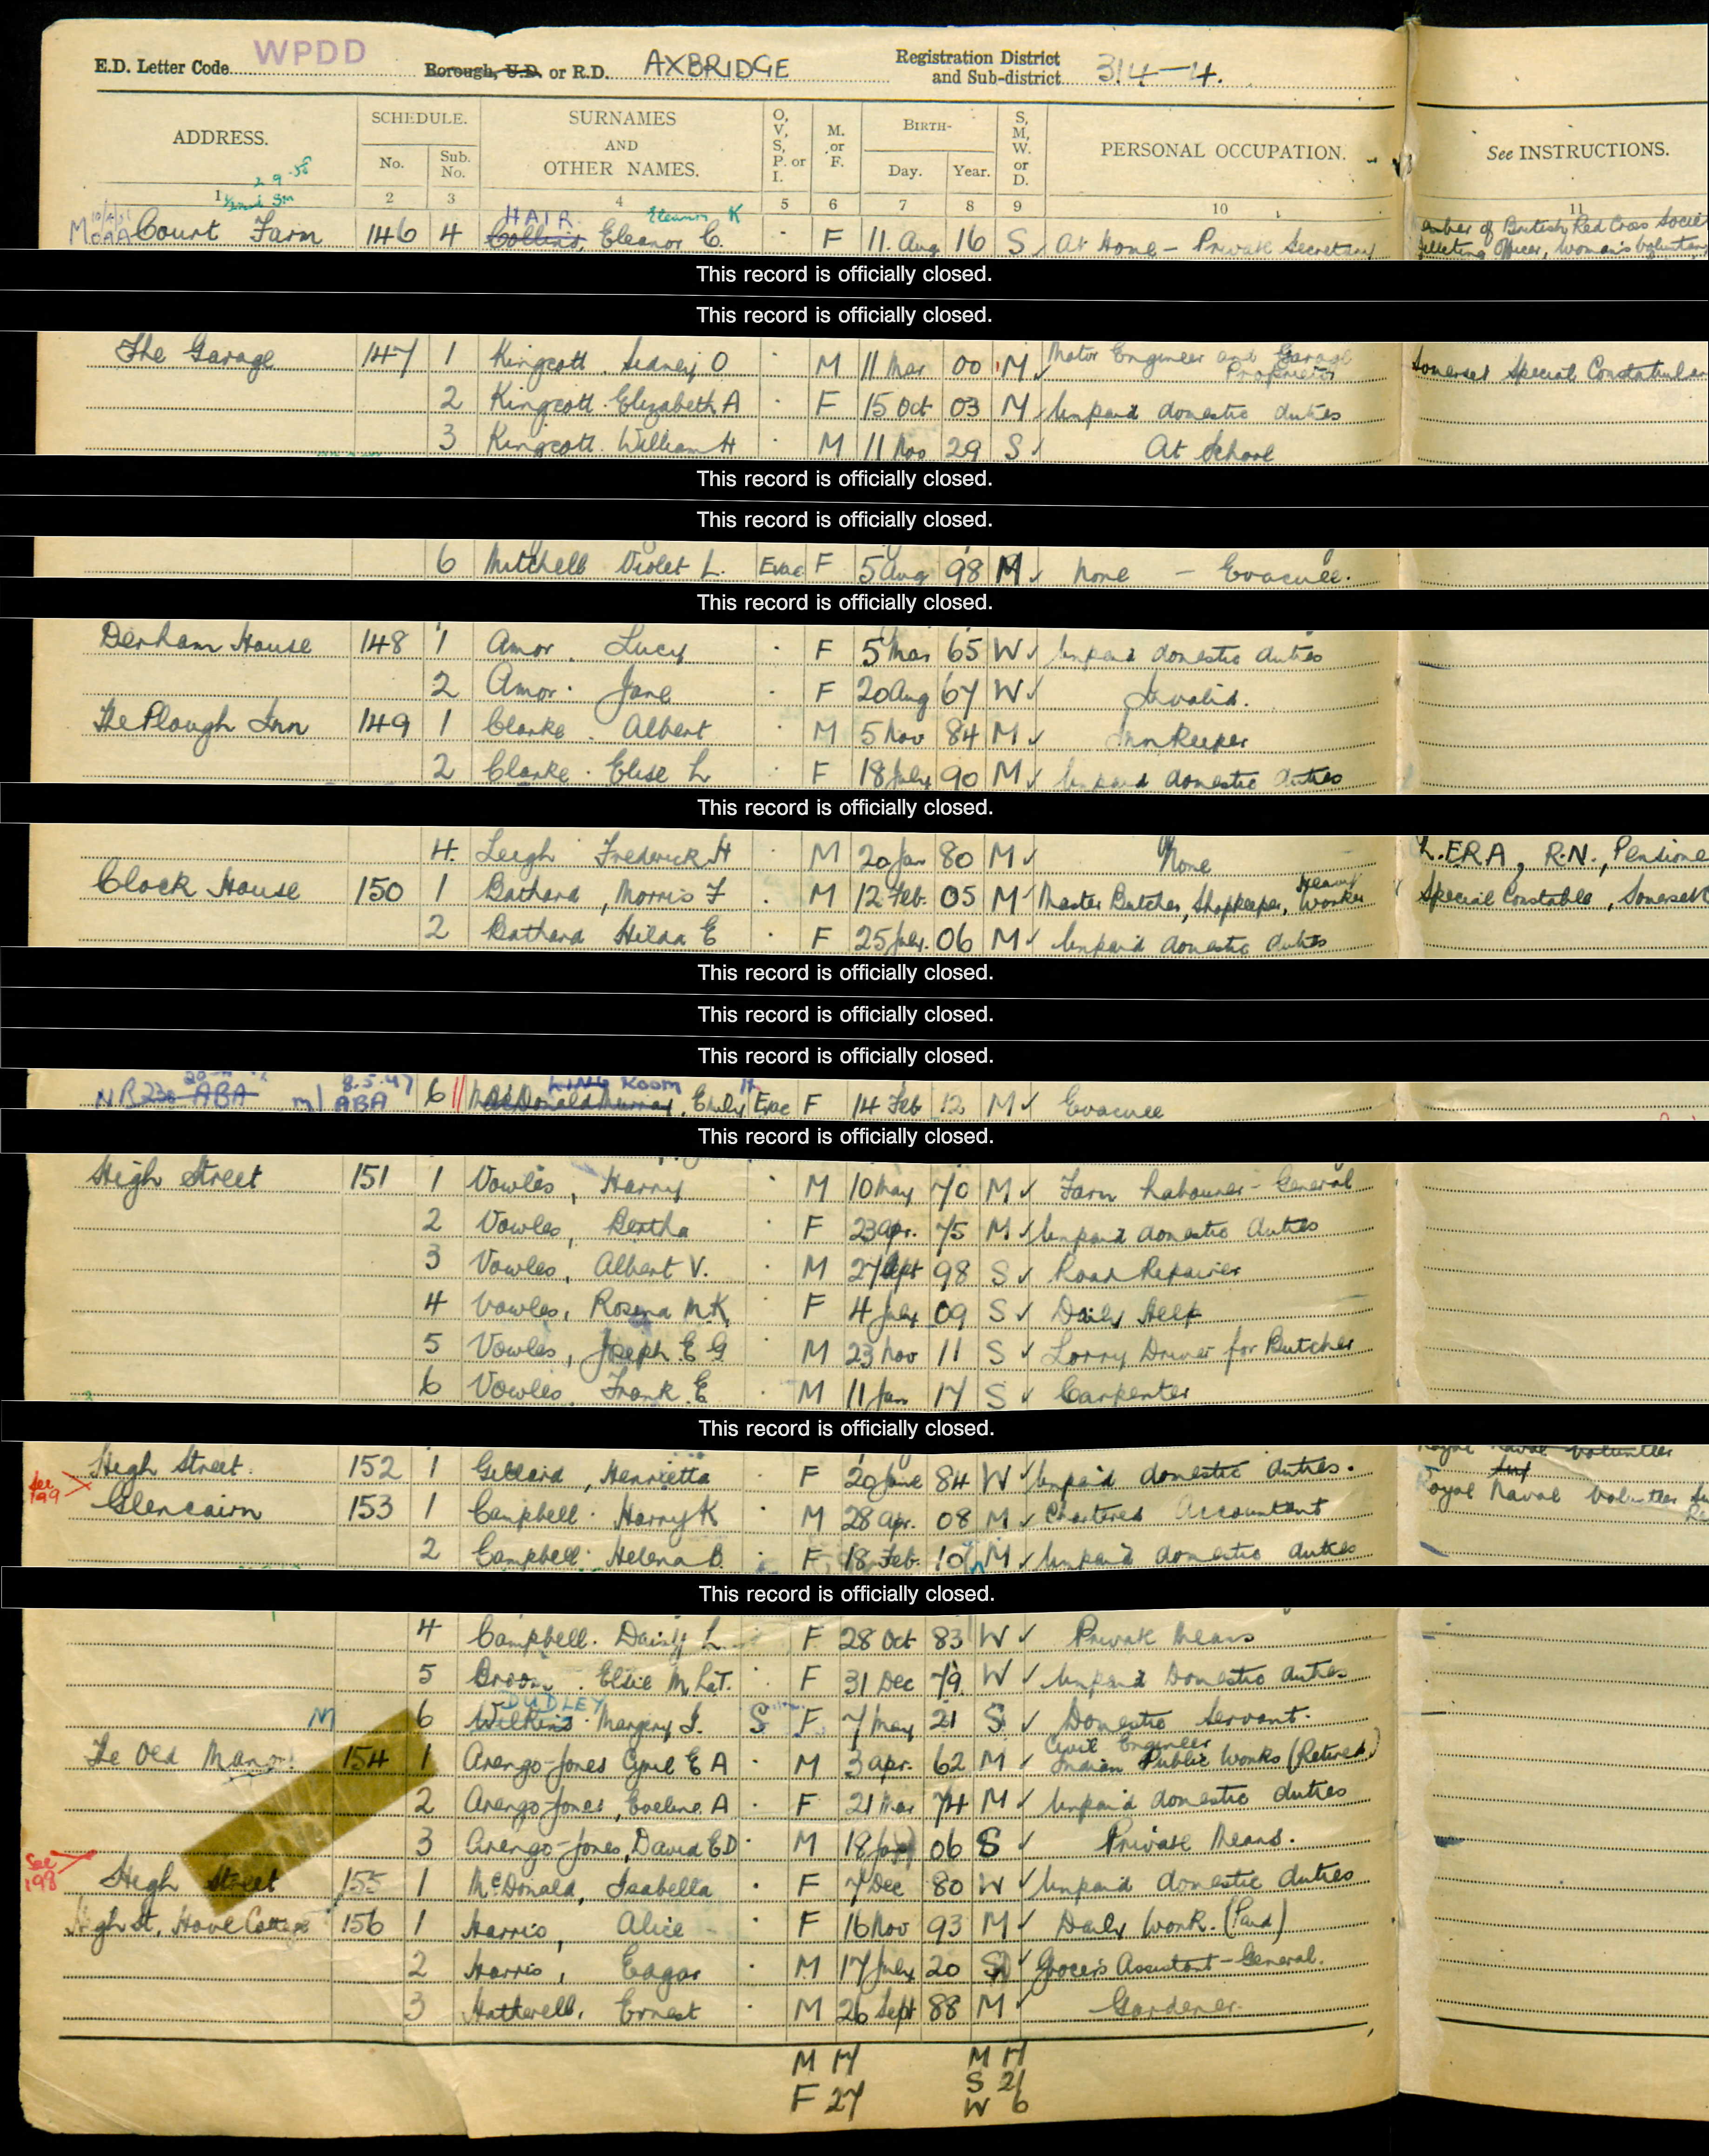 E.D. Letter Code WPDD Borough, U.D. or R.D. AXBRIDGE Registration District and Sub-district 314-4.
ADDRESS. SCHEDULE. No. Sub. No. SURNAMES AND OTHER NAMES. O, V, S, P. or I. M. or F. BIRTH- Day. Year. S, M, W. or D. PERSONAL OCCUPATION. See INSTRUCTIONS.
1 2 3 4 5 6 7 8 9 10 11
2 9 58
HAIR Eleanor K
Court Farm 146 4 Collins, Eleanor C. F 11 Aug 16 S At Home - Private Secretary ember of British Red Cross Societ
Officer, Women's Voluntar
This record is officially closed.
This record is officially closed.
The Garage 147 1 Kingcott Sidney O M 11 Mar 00 M Motor Engineer and Garage Proprietor Somerset Special Constabular
2 Kingcott Elizabeth A F 15 Oct 03 M Unpaid domestic duties
3 Kingcott William H M 11 Nov 29 S At School
This record is officially closed.
This record is officially closed.
6 Mitchell Violet L. Evac F 5 Aug 98 M None - Evacuee.
This record is officially closed.
Derham House 148 1 Amor Lucy F 5 Mar 65 W Unpaid domestic duties
2 Amor Jane F 20 Aug 67 W Invalid.
The Plough Inn 149 1 Clarke Albert M 5 Nov 84 M Inn Keeper
2 Clarke Elise L F 18 July 90 M Unpaid domestic duties
This record is officially closed.
4. Leigh Frederick H M 20 Jan 80 M None ERA, R.N., Pensione
Clock House 150 1 Bathard, Morris F M 12 Feb. 05 M Master Butcher, Shopkeeper, Heavy Worker Special Constable, Somerset
2 Bathard Hilda E F 25 July. 06 M Unpaid domestic duties
This record is officially closed.
This record is officially closed.
This record is officially closed.
NR 230 ABA 8.5.47 ABA 6 Room MacDonald Murray, Emily H Evac F 14 Feb 12 M Evacuee
This record is officially closed.
High Street 151 1 Vowles, Harry M 10 May 70 M Farm Labourer - General
2 Vowles, Bertha F 23 Apr. 75 M Unpaid domestic duties
3 Vowles, Albert V. M 27 Sept 98 S Road Repairer
4 Vowles, Rosena M.K. F 4 July 09 S Daily Help
5 Vowles, Joseph E G M 23 Nov 11 S Lorry Driver for Butcher
6 Vowles Frank E M 11 Jan 17 S Carpenter
This record is officially closed.
Royal Naval Volunteer
High Street. 152 1 Gillard, Henrietta F 20 June 84 W Unpaid domestic duties.
See 199 Glencairn 153 1 Campbell Harry K M 28 Apr. 08 M Chartered Accountant Royal Naval Volunteer Su
2 Campbell Helena B. F 18 Feb. 10 M Unpaid domestic duties
This record is officially closed.
4 Campbell. Daisy L. F 28 Oct 83 W Private Means
5 Broom Elsie M. La T. F 31 Dec 79 W Unpaid Domestic duties
DUDLEY
M 6 Wilkins Margery J. S F 7 May 21 S Domestic Servant.
The Old Manor 154 1 Arengo-Jones Cyril E A M 3 Apr. 62 M Civil Engineer Indian Public Works (Retired)
2 Arengo-Jones, Eveline. A F 21 Mar 74 M Unpaid domestic duties
3 Arengo-Jones, David E D M 18 06 S Private Means.
See 198 High Street 155 1 McDonald, Isabella F 7 Dec 80 W Unpaid domestic duties
High St, Hove Cottage 156 1 Harris, Alice F 16 Nov 93 M Daily Work. (Paid)
2 Harris, Edgar M 17 July 20 S Grocers Assistant - General.
3 Hatherell, Ernest M 26 Sept 88 M Gardener
M 17 M 17
F 27 S 21
W 6